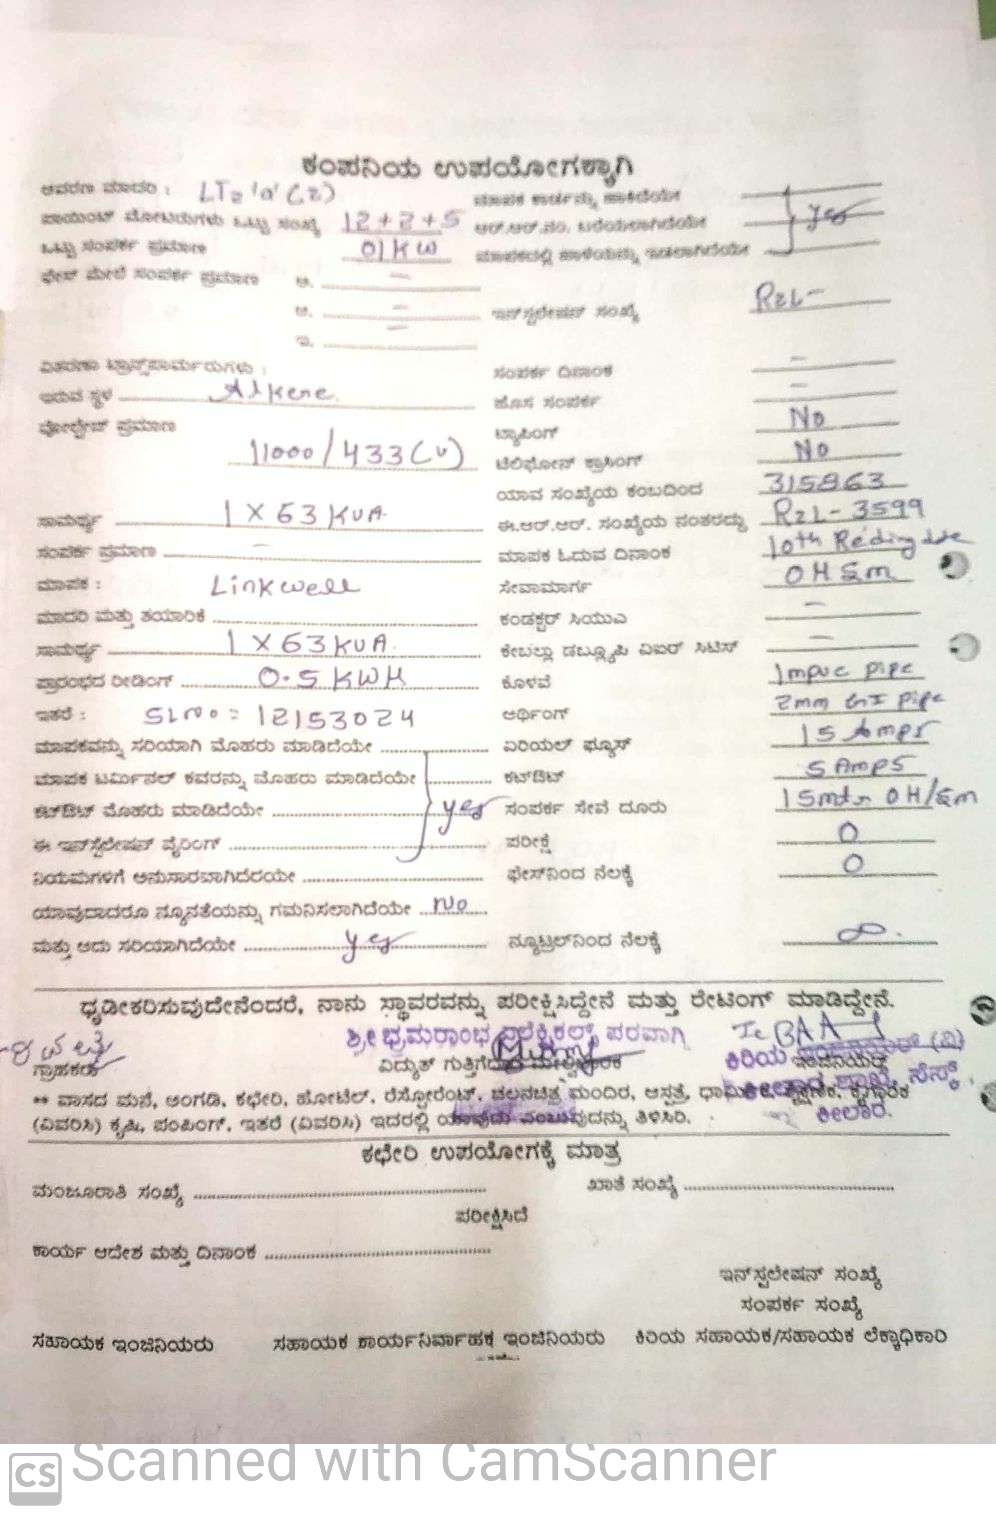 ಕಂಪನಿಯ ಉಪಯೋಗಕ್ಕಾಗಿ
ಆವರಣ ಮಾದರಿ : LT2 'a' (2) ಮಾಪಕ ಕಾರ್ಡನ್ನು ಹಾಕಿದೆಯೇ
ಪಾಯಿಂಟ್ ಮೋಟರುಗಳು ಒಟ್ಟು ಸಂಖ್ಯೆ 12+2+5 ಆರ್.ಆರ್.ನಂ. ಬರೆಯಲಾಗಿದೆಯೇ yes
ಒಟ್ಟು ಸಂಪರ್ಕ ಪ್ರಮಾಣ 01KW ಮಾಪಕದಲ್ಲಿ ಹಾಳೆಯನ್ನು ಇಡಲಾಗಿದೆಯೇ
ಫೇಸ್ ಮೇಲೆ ಸಂಪರ್ಕ ಪ್ರಮಾಣ ಅ. –
ಆ. – ಇನ್‌ಸ್ಟಲೇಷನ್ ಸಂಖ್ಯೆ RzL-
ಇ. –
ವಿತರಣಾ ಟ್ರಾನ್ಸ್‌ಫಾರ್ಮರುಗಳು : ಸಂಪರ್ಕ ದಿನಾಂಕ –
ಇರುವ ಸ್ಥಳ Alkere. ಹೊಸ ಸಂಪರ್ಕ –
ವೋಲ್ಟೇಜ್ ಪ್ರಮಾಣ ಟ್ಯಾಪಿಂಗ್ No
11000/433(v) ಟೆಲಿಫೋನ್ ಕ್ರಾಸಿಂಗ್ No
ಯಾವ ಸಂಖ್ಯೆಯ ಕಂಬದಿಂದ 315863
ಸಾಮರ್ಥ್ಯ 1 X 63 KVA ಈ.ಆರ್.ಆರ್. ಸಂಖ್ಯೆಯ ನಂತರದ್ದು RzL-3599
ಸಂಪರ್ಕ ಪ್ರಮಾಣ – ಮಾಪಕ ಓದುವ ದಿನಾಂಕ 10th Reding date
ಮಾಪಕ : Linkwell ಸೇವಾಮಾರ್ಗ OH Sm
ಮಾದರಿ ಮತ್ತು ತಯಾರಿಕೆ ಕಂಡಕ್ಟರ್ ಸಿಯುಎ –
ಸಾಮರ್ಥ್ಯ 1 X 63 KVA. ಕೇಬಲ್ಲು ಡಬ್ಲ್ಯೂಪಿ ವಿಐರ್ ಸಿಟಿಸ್ –
ಪ್ರಾರಂಭದ ರೀಡಿಂಗ್ 0.5 KWH ಕೊಳವೆ 1mpvc pipe
ಇತರೆ : SLNo = 12153024 ಅರ್ಥಿಂಗ್ 2mm GI pipe
ಮಾಪಕವನ್ನು ಸರಿಯಾಗಿ ಮೊಹರು ಮಾಡಿದೆಯೇ ಏರಿಯಲ್ ಫ್ಯೂಸ್ 15 Amps
ಮಾಪಕ ಟರ್ಮಿನಲ್ ಕವರನ್ನು ಮೊಹರು ಮಾಡಿದೆಯೇ ಕಟ್‌ಔಟ್ 5 AmPS
ಕಟ್‌ಔಟ್ ಮೊಹರು ಮಾಡಿದೆಯೇ yes ಸಂಪರ್ಕ ಸೇವೆ ದೂರು 15mtr OH/Sm
ಈ ಇನ್‌ಸ್ಟಲೇಷನ್ ವೈರಿಂಗ್ ಪರೀಕ್ಷೆ 0
ನಿಯಮಗಳಿಗೆ ಅನುಸಾರವಾಗಿದೆರಯೇ ಫೇಸ್‌ನಿಂದ ನೆಲಕ್ಕೆ 0
ಯಾವುದಾದರೂ ನ್ಯೂನತೆಯನ್ನು ಗಮನಿಸಲಾಗಿದೆಯೇ No
ಮತ್ತು ಅದು ಸರಿಯಾಗಿದೆಯೇ yes ನ್ಯೂಟ್ರಲ್‌ನಿಂದ ನೆಲಕ್ಕೆ ∞.
ಧೃಡೀಕರಿಸುವುದೇನೆಂದರೆ, ನಾನು ಸ್ಥಾವರವನ್ನು ಪರೀಕ್ಷಿಸಿದ್ದೇನೆ ಮತ್ತು ರೇಟಿಂಗ್ ಮಾಡಿದ್ದೇನೆ.
ಶ್ರೀ ಭ್ರಮರಾಂಭ ಎಲೆಕ್ಟ್ರಿಕಲ್ಸ್ ಪರವಾಗಿ
ಗ್ರಾಹಕರು ವಿದ್ಯುತ್ ಕಿರಿಯ ಇಂಜಿನಿಯರ್ (ವಿ)
ಶಾಖೆ, ಸೆಸ್ಕ್,
** ವಾಸದ ಮನೆ, ಅಂಗಡಿ, ಕಛೇರಿ, ಹೋಟೆಲ್, ರೆಸ್ಟೋರೆಂಟ್, ಚಲನಚಿತ್ರ ಮಂದಿರ, ಆಸ್ಪತ್ರೆ, ಧಾರ್ಮಿಕ, ಶೈಕ್ಷಣಿಕ, ಕೈಗಾರಿಕೆ
ಕೀಲಾರ.
(ವಿವರಿಸಿ) ಕೃಷಿ, ಪಂಪಿಂಗ್, ಇತರೆ (ವಿವರಿಸಿ) ಇದರಲ್ಲಿ ಯಾವುದು ಎಂಬುವುದನ್ನು ತಿಳಿಸಿರಿ.
ಕಛೇರಿ ಉಪಯೋಗಕ್ಕೆ ಮಾತ್ರ
ಮಂಜೂರಾತಿ ಸಂಖ್ಯೆ ಖಾತೆ ಸಂಖ್ಯೆ
ಪರೀಕ್ಷಿಸಿದೆ
ಕಾರ್ಯ ಆದೇಶ ಮತ್ತು ದಿನಾಂಕ
ಇನ್‌ಸ್ಟಲೇಷನ್ ಸಂಖ್ಯೆ
ಸಂಪರ್ಕ ಸಂಖ್ಯೆ
ಸಹಾಯಕ ಇಂಜಿನಿಯರು ಸಹಾಯಕ ಕಾರ್ಯನಿರ್ವಾಹಕ ಇಂಜಿನಿಯರು ಕಿರಿಯ ಸಹಾಯಕ/ಸಹಾಯಕ ಲೆಕ್ಕಾಧಿಕಾರಿ
CS Scanned with CamScanner